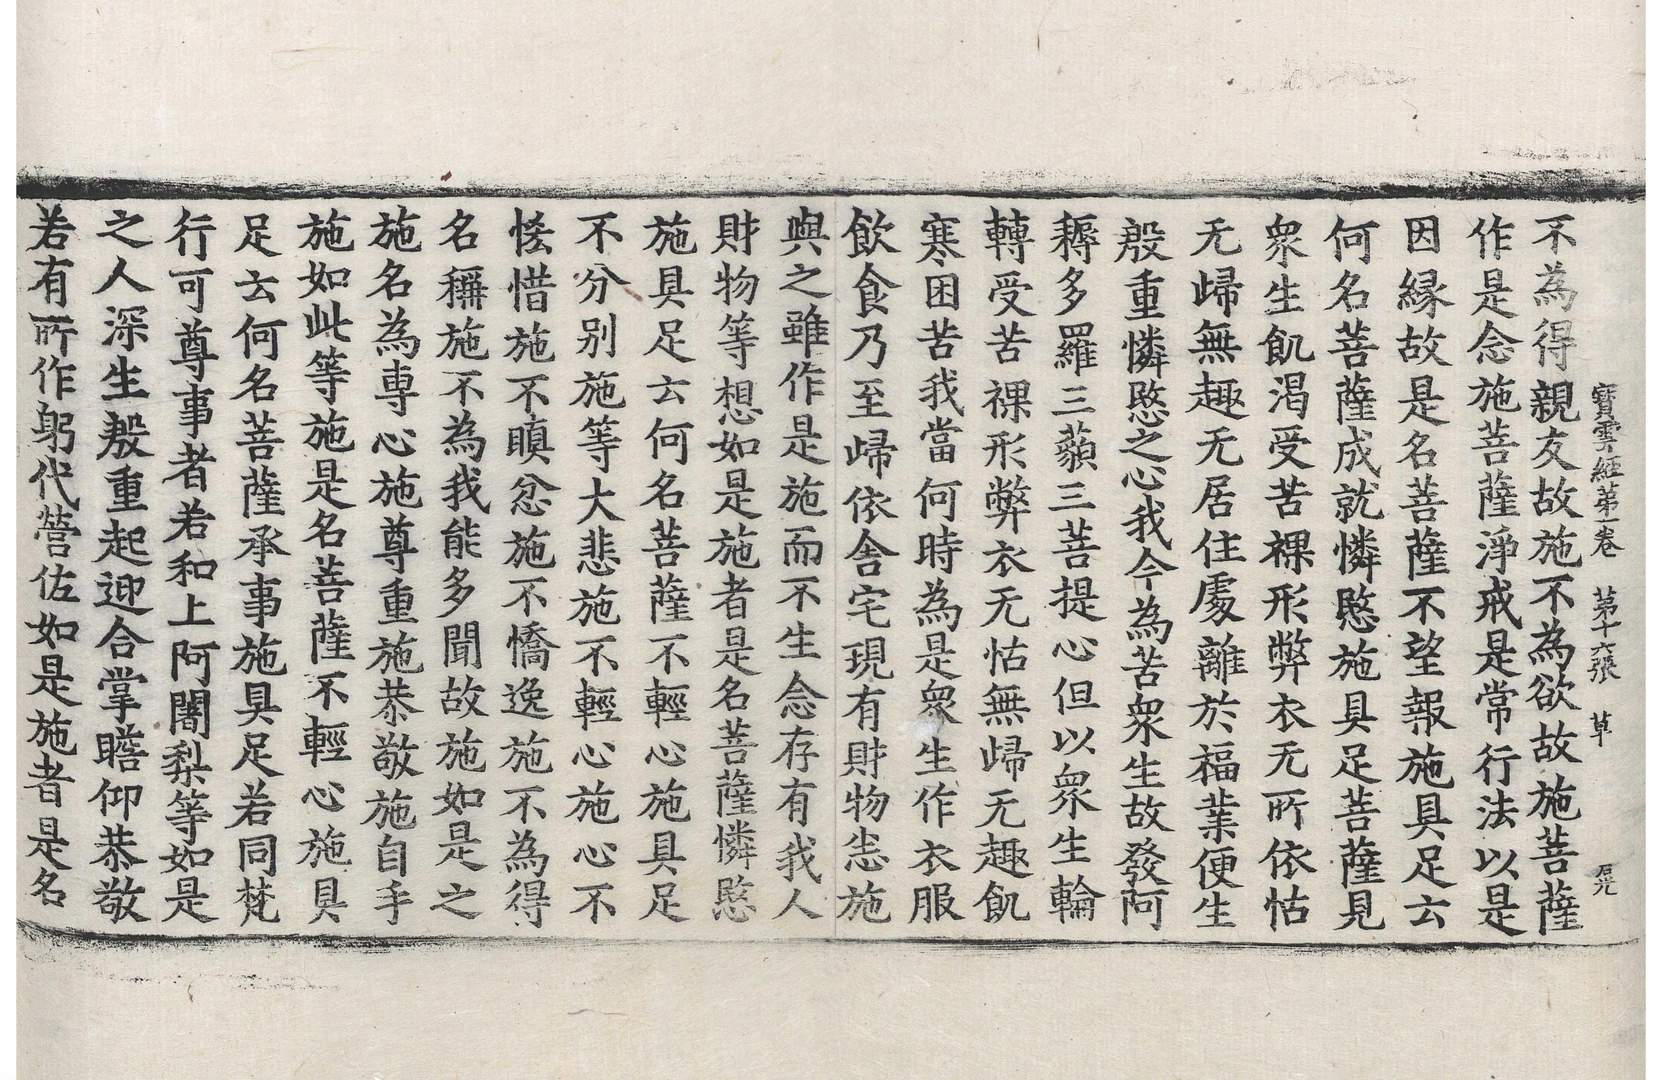 寳雲經第一卷　第十六張　草　石光
不為得親友故施不為欲故施菩薩
作是念施菩薩淨戒是常行法以是
因縁故是名菩薩不望報施具足云
何名菩薩成就憐愍施具足菩薩見
衆生飢渇受苦裸形弊衣无所依怙
无歸無趣无居住處離於福業便生
殷重憐愍之心我今為苦衆生故發阿
耨多羅三藐三菩提心但以衆生輪
轉受苦裸形弊衣无怙無歸无趣飢
寒困苦我當何時為是衆生作衣服
飲食乃至歸依舍宅現有財物悉施
與之雖作是施而不生念存有我人
財物等想如是施者是名菩薩憐愍
施具足云何名菩薩不輕心施具足
不分別施等大悲施不輕心施心不
恡惜施不瞋忿施不憍逸施不為得
名稱施不為我能多聞故施如是之
施名為專心施尊重施恭敬施自手
施如此等施是名菩薩不輕心施具
足云何名菩薩承事施具足若同梵
行可尊事者若和上阿闍梨等如是
之人深生殷重起迎合掌瞻仰恭敬
若有所作躬代營佐如是施者是名